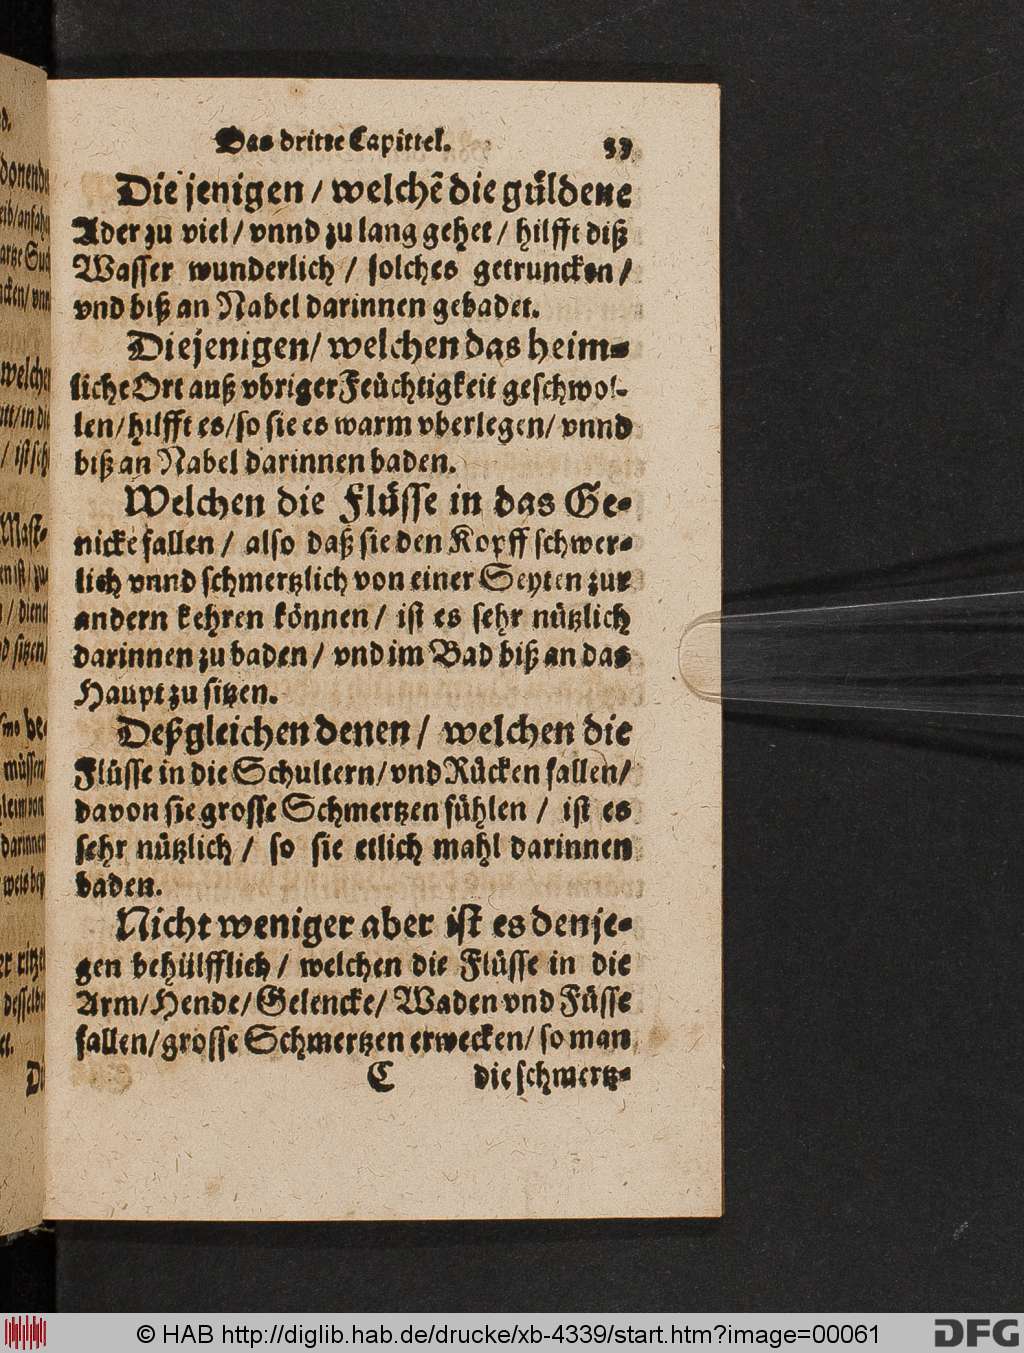 Das dritte Capittel. 33
Die jenigen / welchẽ die güldene
Ader zu viel / vnnd zu lang gehet / hilfft diß
Wasser wunderlich / solches getruncken /
vnd biß an Nabel darinnen gebadet.
Diejenigen / welchen das heim-
liche Ort auß vbriger Feüchtigkeit geschwol-
len / hilfft es / so sie es warm vberlegen / vnnd
biß an Nabel darinnen baden.
Welchen die Flüsse in das Ge-
nicke fallen / also daß sie den Kopff schwer-
lich vnnd schmertzlich von einer Seyten zur
andern kehren können / ist es sehr nützlich
darinnen zu baden / vnd im Bad biß an das
Haupt zu sitzen.
Deßgleichen denen / welchen die
Flüsse in die Schultern / vnd Rücken fallen /
davon sie grosse Schmertzen fühlen / ist es
sehr nützlich / so sie etlich mahl darinnen
baden.
Nicht weniger aber ist es denje-
gen behülfflich / welchen die Flüsse in die
Arm / Hende / Gelencke / Waden vnd Füsse
fallen / grosse Schmertzen erwecken / so man
C die schmertz-
© HAB http://diglib.hab.de/drucke/xb-4339/start.htm?image=00061
DFG